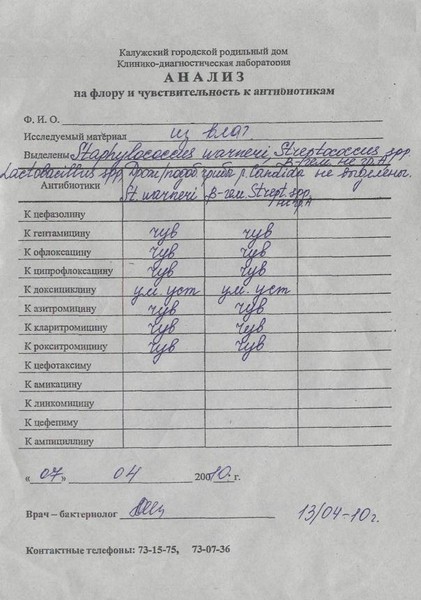 Калужский городской родильный дом
Клинико-диагностическая лаборатория
АНАЛИЗ
на флору и чувствительность к антибиотикам
Ф. И. О.
Исследуемый материал из влаг.
Выделены Staphylococcus warneri, Streptococcus spp.
β-гем. не гр. А
Lactobacillus spp. Дрож/подоб гриба р. Candida не выделены.
Антибиотики St. warneri β-гем. Strept. spp.
не гр А
К цефазолину
К гентамицину чув чув
К офлоксацину чув чув
К ципрофлоксацину чув чув
К доксициклину ум. уст ум. уст
К азитромицину чув чув
К кларитромицину чув чув
К рокситромицину чув чув
К цефотаксиму
К амикацину
К линкомицину
К цефепиму
К ампициллину
«07» 04 20010г.
Врач – бактериолог 13/04-10г.
Контактные телефоны: 73-15-75, 73-07-36